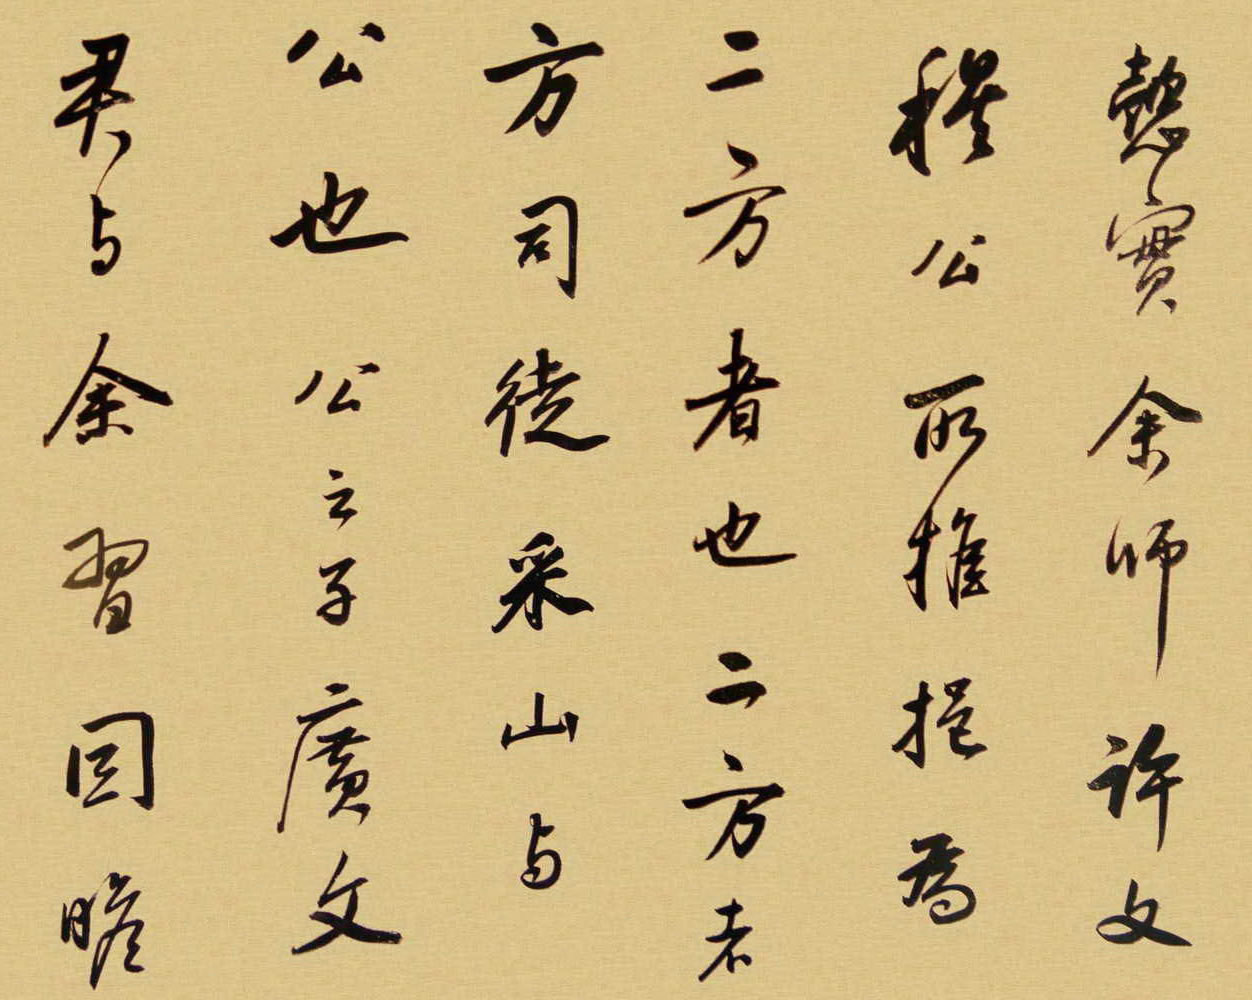 懿實余師許文
穆公所推挹為
二方者也二方者
方司徒采山與
公也公之子廣文
君與余習因瞻